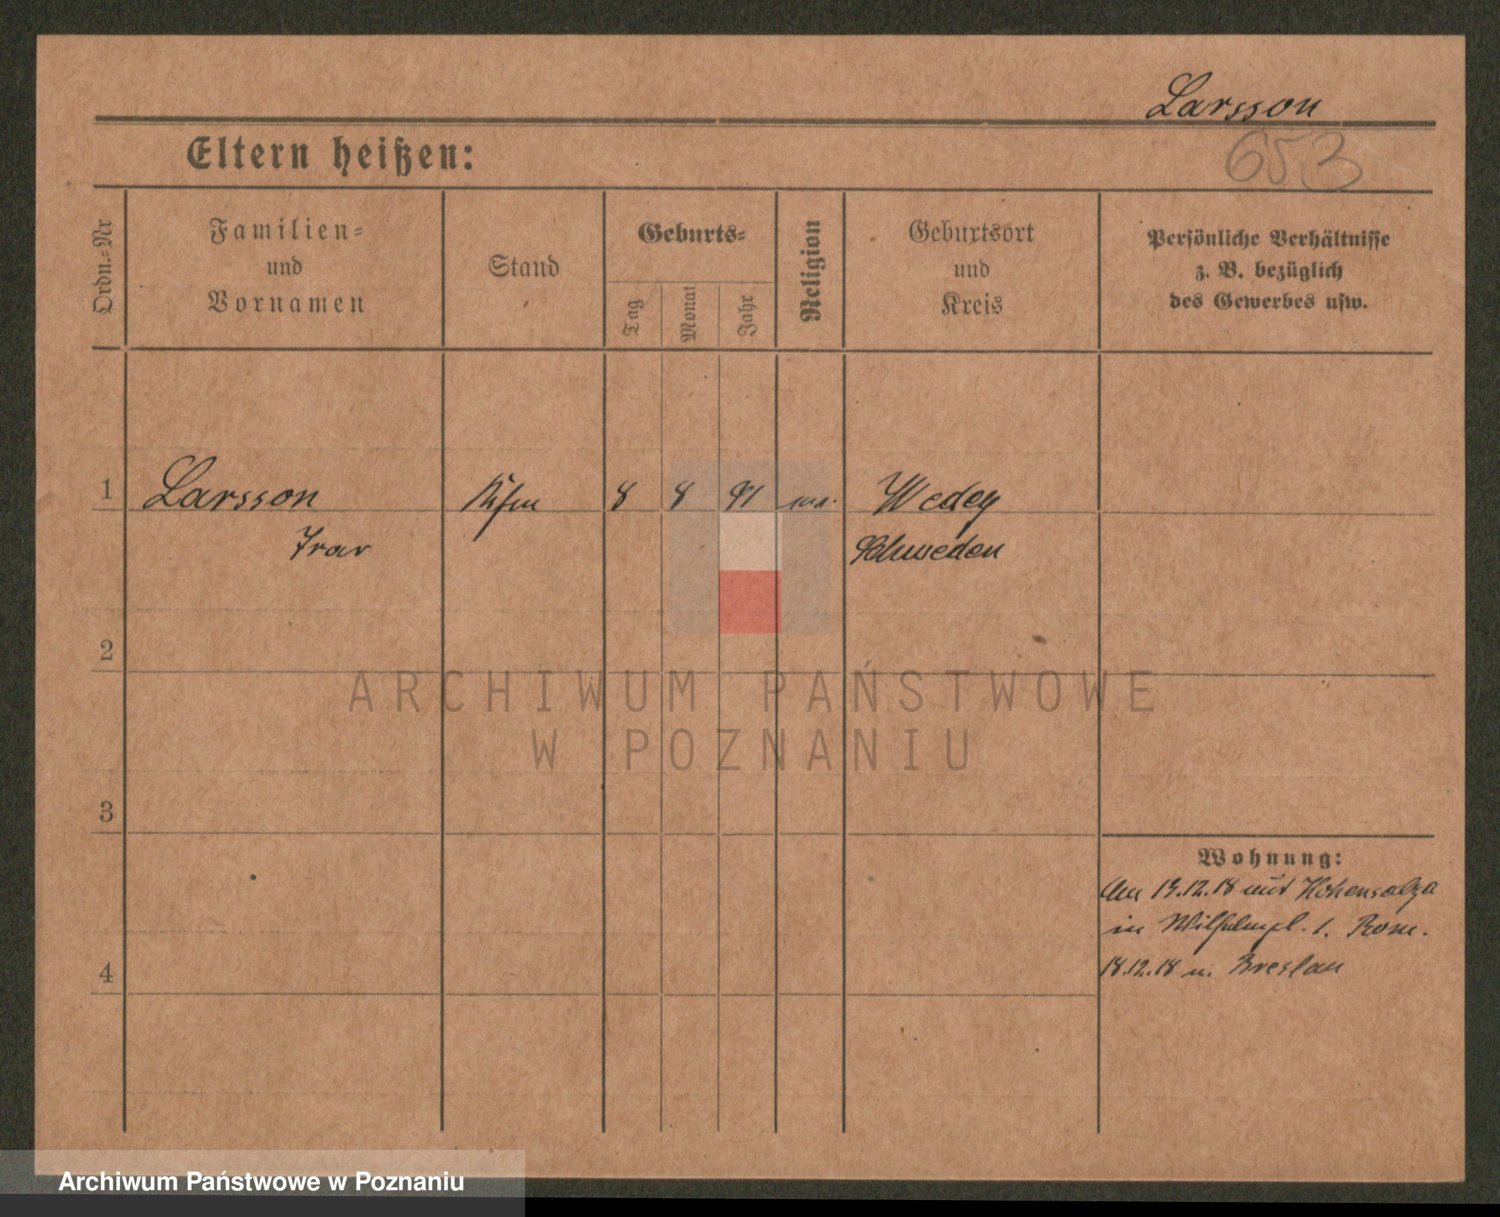 Larsson
653
Eltern heißen:
Ordn.=Nr
Familien=
und
Vornamen
Stand
Geburts=
Tag
Monat
Jahr
Religion
Geburtsort
und
Kreis
Persönliche Verhältnisse
z. B. bezüglich
des Gewerbes usw.
1 Larsson 8 8 91 Wedey
Ivar
Schweden
2
ARCHIWUM PAŃSTWOWE
W POZNANIU
3
Wohnung:
Am 13.12.18 aus Hohensalza
in Wilhelmpl. 1. Rom.
4
18.12.18 n. Breslau
Archiwum Państwowe w Poznaniu